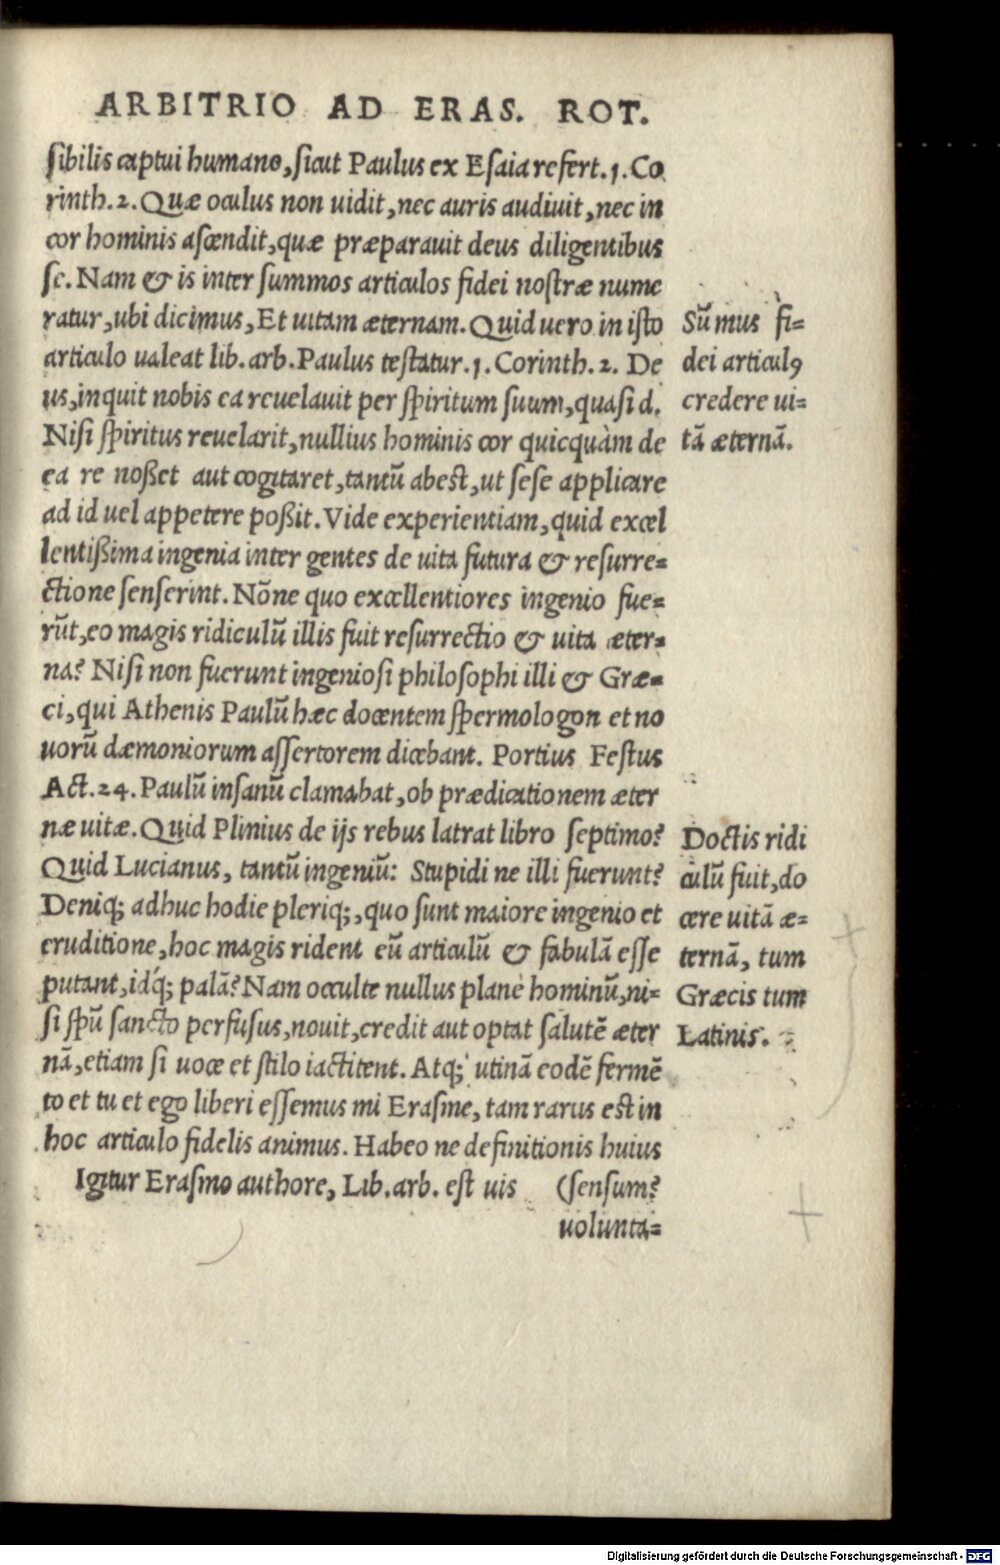 ARBITRIO AD ERAS. ROT.
sibilis captui humano, sicut Paulus ex Esaia refert. 1. Co
rinth. 2. Quæ oculus non uidit, nec auris audiuit, nec in
cor hominis ascendit, quæ præparauit deus diligentibus
se. Nam & is inter summos articulos fidei nostræ nume
ratur, ubi dicimus, Et uitam æternam. Quid uero in isto
articulo ualeat lib. arb. Paulus testatur. 1. Corinth. 2. De
us, inquit nobis ea reuelauit per spiritum suum, quasi d.
Nisi spiritus reuelarit, nullius hominis cor quicquàm de
ea re noßet aut cogitaret, tantū abest, ut sese applicare
ad id uel appetere poßit. Vide experientiam, quid excel
lentißima ingenia inter gentes de uita futura & resurre=
ctione senserint. Nōne quo excellentiores ingenio fue=
rūt, eo magis ridiculū illis fuit resurrectio & uita æter=
na? Nisi non fuerunt ingeniosi philosophi illi & Græ=
ci, qui Athenis Paulū hæc docentem spermologon et no
uorū dæmoniorum assertorem dicebant. Portius Festus
Act. 24. Paulū insanū clamabat, ob prædicationem æter
næ uitæ. Quid Plinius de ijs rebus latrat libro septimo?
Quid Lucianus, tantū ingeniū: Stupidi ne illi fuerunt?
Deniq; adhuc hodie pleriq;, quo sunt maiore ingenio et
eruditione, hoc magis rident eū articulū & fabulā esse
putant, idq́; palā? Nam occulte nullus planè hominū, ni=
si spū sancto perfusus, nouit, credit aut optat salutē æter
nā, etiam si uoce et stilo iactitent. Atq; utinā eodē fermē
to et tu et ego liberi essemus mi Erasme, tam rarus est in
hoc articulo fidelis animus. Habeo ne definitionis huius
Igitur Erasmo authore, Lib. arb. est uis (sensum?
uolunta=
Sūmus fi=
dei articulꝰ
credere ui=
tā æternā.
Doctis ridi
culū fuit, do
cere uitā æ=
ternā, tum
Græcis tum
Latinis.
Digitalisierung gefördert durch die Deutsche Forschungsgemeinschaft - DFG